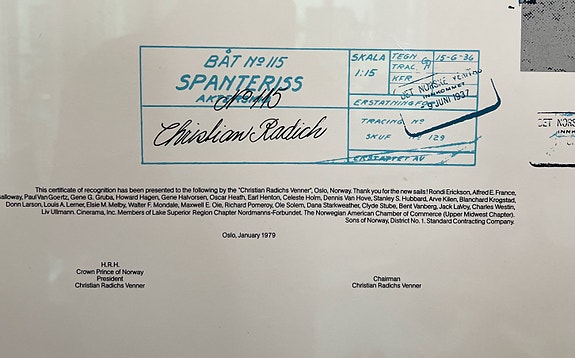 BÅT Nº 115
SPANTERISS
Nº 115
Christian Radich
SKALA
1:15
TEGN.
15-6-36
TRAC.
KFR
ERSTATNING F
TRACING Nº
SKUF 129
ERSTATTET AV
DET NORSKE VERITAS
JUNI 1937
DET NORS
This certificate of recognition has been presented to the following by the "Christian Radichs Venner", Oslo, Norway. Thank you for the new sails! Rondi Erickson, Alfred E. France,
alloway, Paul Van Goertz, Gene G. Gruba, Howard Hagen, Gene Halvorsen, Oscar Heath, Earl Henton, Celeste Holm, Dennis Van Hove, Stanley S. Hubbard, Arve Kilen, Blanchard Krogstad,
Donn Larson, Louis A. Lerner, Elsie M. Melby, Walter F. Mondale, Maxwell E. Oie, Richard Pomeroy, Ole Solem, Dana Starkweather, Clyde Stube, Bent Vanberg, Jack LaVoy, Charles Westin,
Liv Ullmann. Cinerama, Inc. Members of Lake Superior Region Chapter Nordmanns-Forbundet. The Norwegian American Chamber of Commerce (Upper Midwest Chapter).
Sons of Norway, District No. 1. Standard Contracting Company.
Oslo, January 1979
H.R.H.
Crown Prince of Norway
President
Christian Radichs Venner
Chairman
Christian Radichs Venner